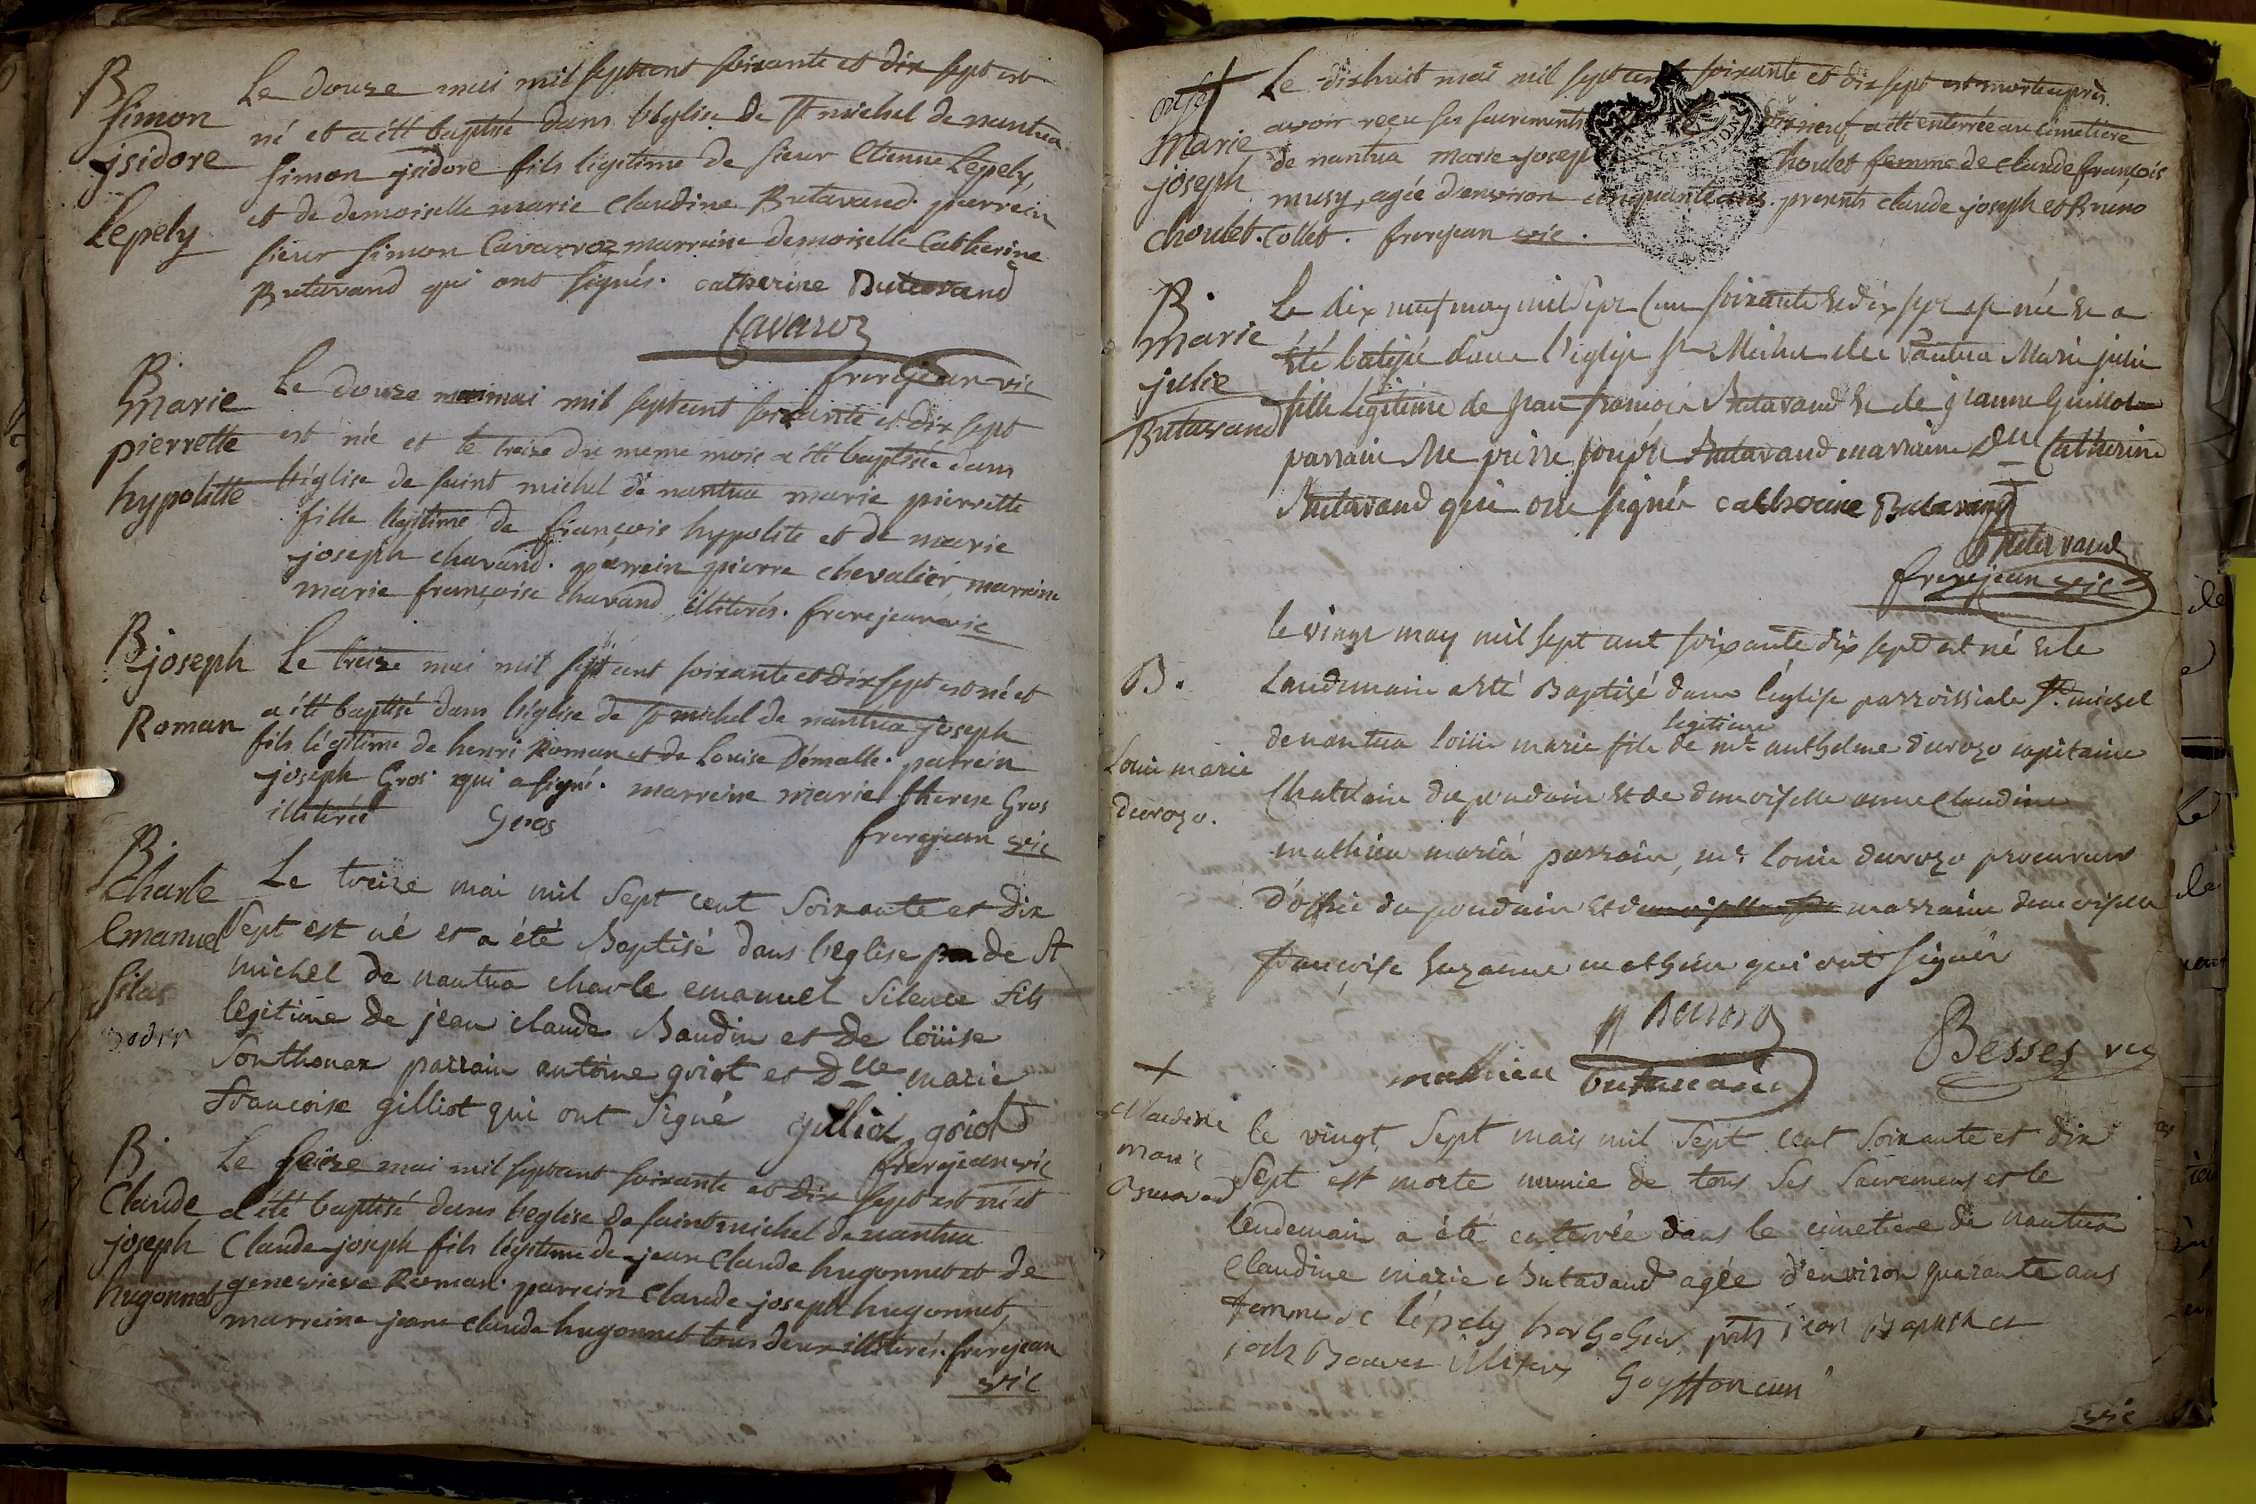 B
Simon
jsidore
Lepely
Le douze mai mil septcent soixante et dix sept est
né et a été baptisé dans l'église de St michel de nantua
Simon jsidore fils légitime de sieur Etienne Lepely,
et de demoiselle marie Claudine Butavand. parrein
sieur Simon Cavarroz marraine demoiselle Catherine
Butavand qui ont signés. catherine Butavand
Cavaroz
frerejean vic
B.
Marie
pierrette
hypolitte
Le douze mai mil septcent soixante et dix sept
est née et le treize du meme mois a été baptisée dans
l'église de saint michel de nantua marie pierrette
fille légitime de françois hypolite et de marie
joseph chavand. parrein pierre chevalier, marreine
marie françoise chavand, illiterés. frerejean vic
B joseph
Roman
Le treize mai mil sept cent soixante et dix sept est né et
a été baptisé dans l'église de st michel de nantua joseph
fils légitime de henri Roman et de Louise Démalle. parrein
joseph Gros qui a signé. marreine marie therese Gros
illiterée Gros frerejean vic
B.
Charle
Emanuel
Le treize mai mil sept cent soixante et dix
sept est né et a été Baptisé dans l'eglise de st
michel de nantua charle emanuel silence fils
legitime de jean claude Baudin et de loüise
Sonthonax parrain antoine griot et Dlle marie
francoise gilliot qui ont signé gilliot griot
frerejean vic
B.
Claude
joseph
hugonnet
Le seize mai mil septcent soixante et dix sept est né et
a été baptisé dans l'eglise de saint michel de nantua
Claude-joseph fils légitime de jean Claude hugonnet et de
genevieve Roman. parrein Claude-joseph hugonnet,
marreine jeane claude hugonnet tous deux illiterés. frerejean
vic
Marie
joseph
Choulet.
Le dixhuit mai mil sept cent soixante et dix sept est morte après
avoir reçu ses sacrements neuf a été enterrée au cimetiere
de nantua marie joseph Choulet femme de claude françois
musy, agée d'environ cinquante ans. presents claude joseph et Bruno
Collet. frerejean vic.
B.
Marie
julie
Butavand
Le dix neuf may mil sept cent soixante et dix sept est née et a
été batisée dans l'église St Michel de Nantua Marie julie
fille légitime de jean françois Butavand et de jeanne Guillot
parrain Me pierre joseph Butavand marraine Dlle Catherine
Butavand qui ont signés catherine Butavand
Butavand
frerejean vic
B.
Louis marie
Durozo.
le vingt may mil sept cent soixante dix sept est né et le
Landemain a été Baptisé dans l'église parroissiale St. michel
de nantua loüis marie fils legitime de mr anthelme durozo capitaine
Chatelain du poudain et de demoiselle anne claudine
mathieu mariés parrain, mr louis durozo procureur
D'office du poudain et marraine demoiselle
françoise suzanne mathieu qui ont signés
Durozo
mathieu butavand
Besses vic
+
Claudine
Marie
Butavad
le vingt sept mai mil sept cent soixante et dix
sept est morte munie de tous ses sacremens et le
lendemain a été enterrée dans le cimetiere de nantua
Claudine marie Butavand agée d'environ quarante ans
femme de lépely horloger, jean Baptiste et
Bouvet illiterés
vic